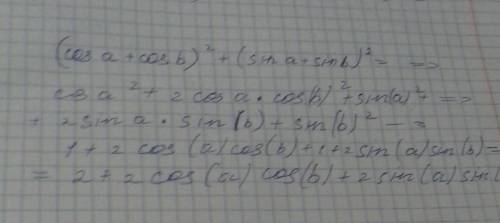 (cos a + cos b)² + (sin a + sin b)² = =>
cos a² + 2 cos a · cos(b)² + sin(a)² + =>
+ 2 sin a · sin(b) + sin(b)² - =
1 + 2 cos (a) cos(b) + 1 + 2 sin(a) sin(b) =
= 2 + 2 cos (a) cos(b) + 2 sin(a) sin(